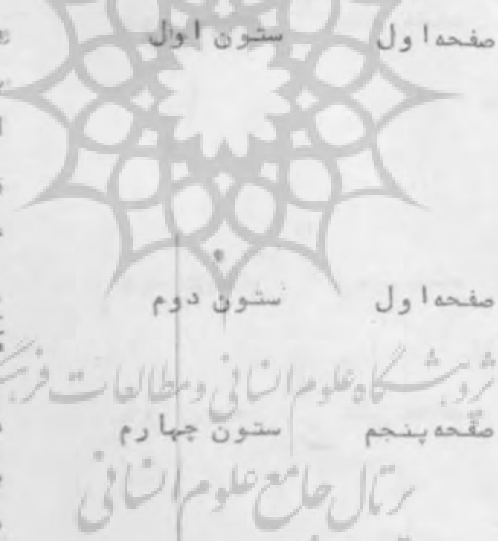 صفحه اول ستون اول
صفحه اول ستون دوم
پژوهشگاه علوم انسانی و مطالعات فرهنگ
صفحه پنجم ستون چهارم
پرتال جامع علوم انسانی